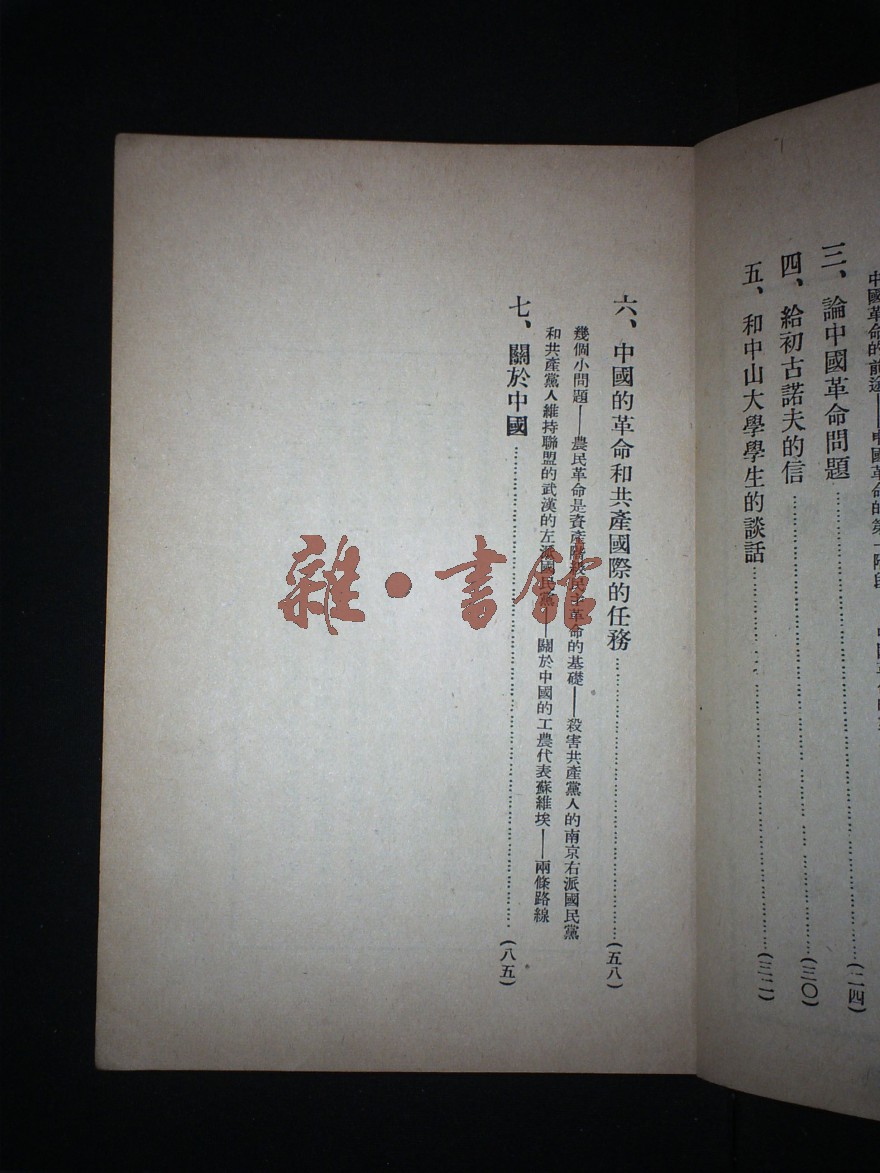 中國革命的前途——中國革命的第一階段
三、論中國革命問題……(二四)
四、給初古諾夫的信……(三〇)
五、和中山大學學生的談話……(三二)
六、中國的革命和共產國際的任務……(五八)
幾個小問題——農民革命是資產階級民主革命的基礎——殺害共產黨人的南京右派國民黨
和共產黨人維持聯盟的武漢的左派國民黨——關於中國的工農代表蘇維埃——兩條路線
七、關於中國……(八五)
雜·書館